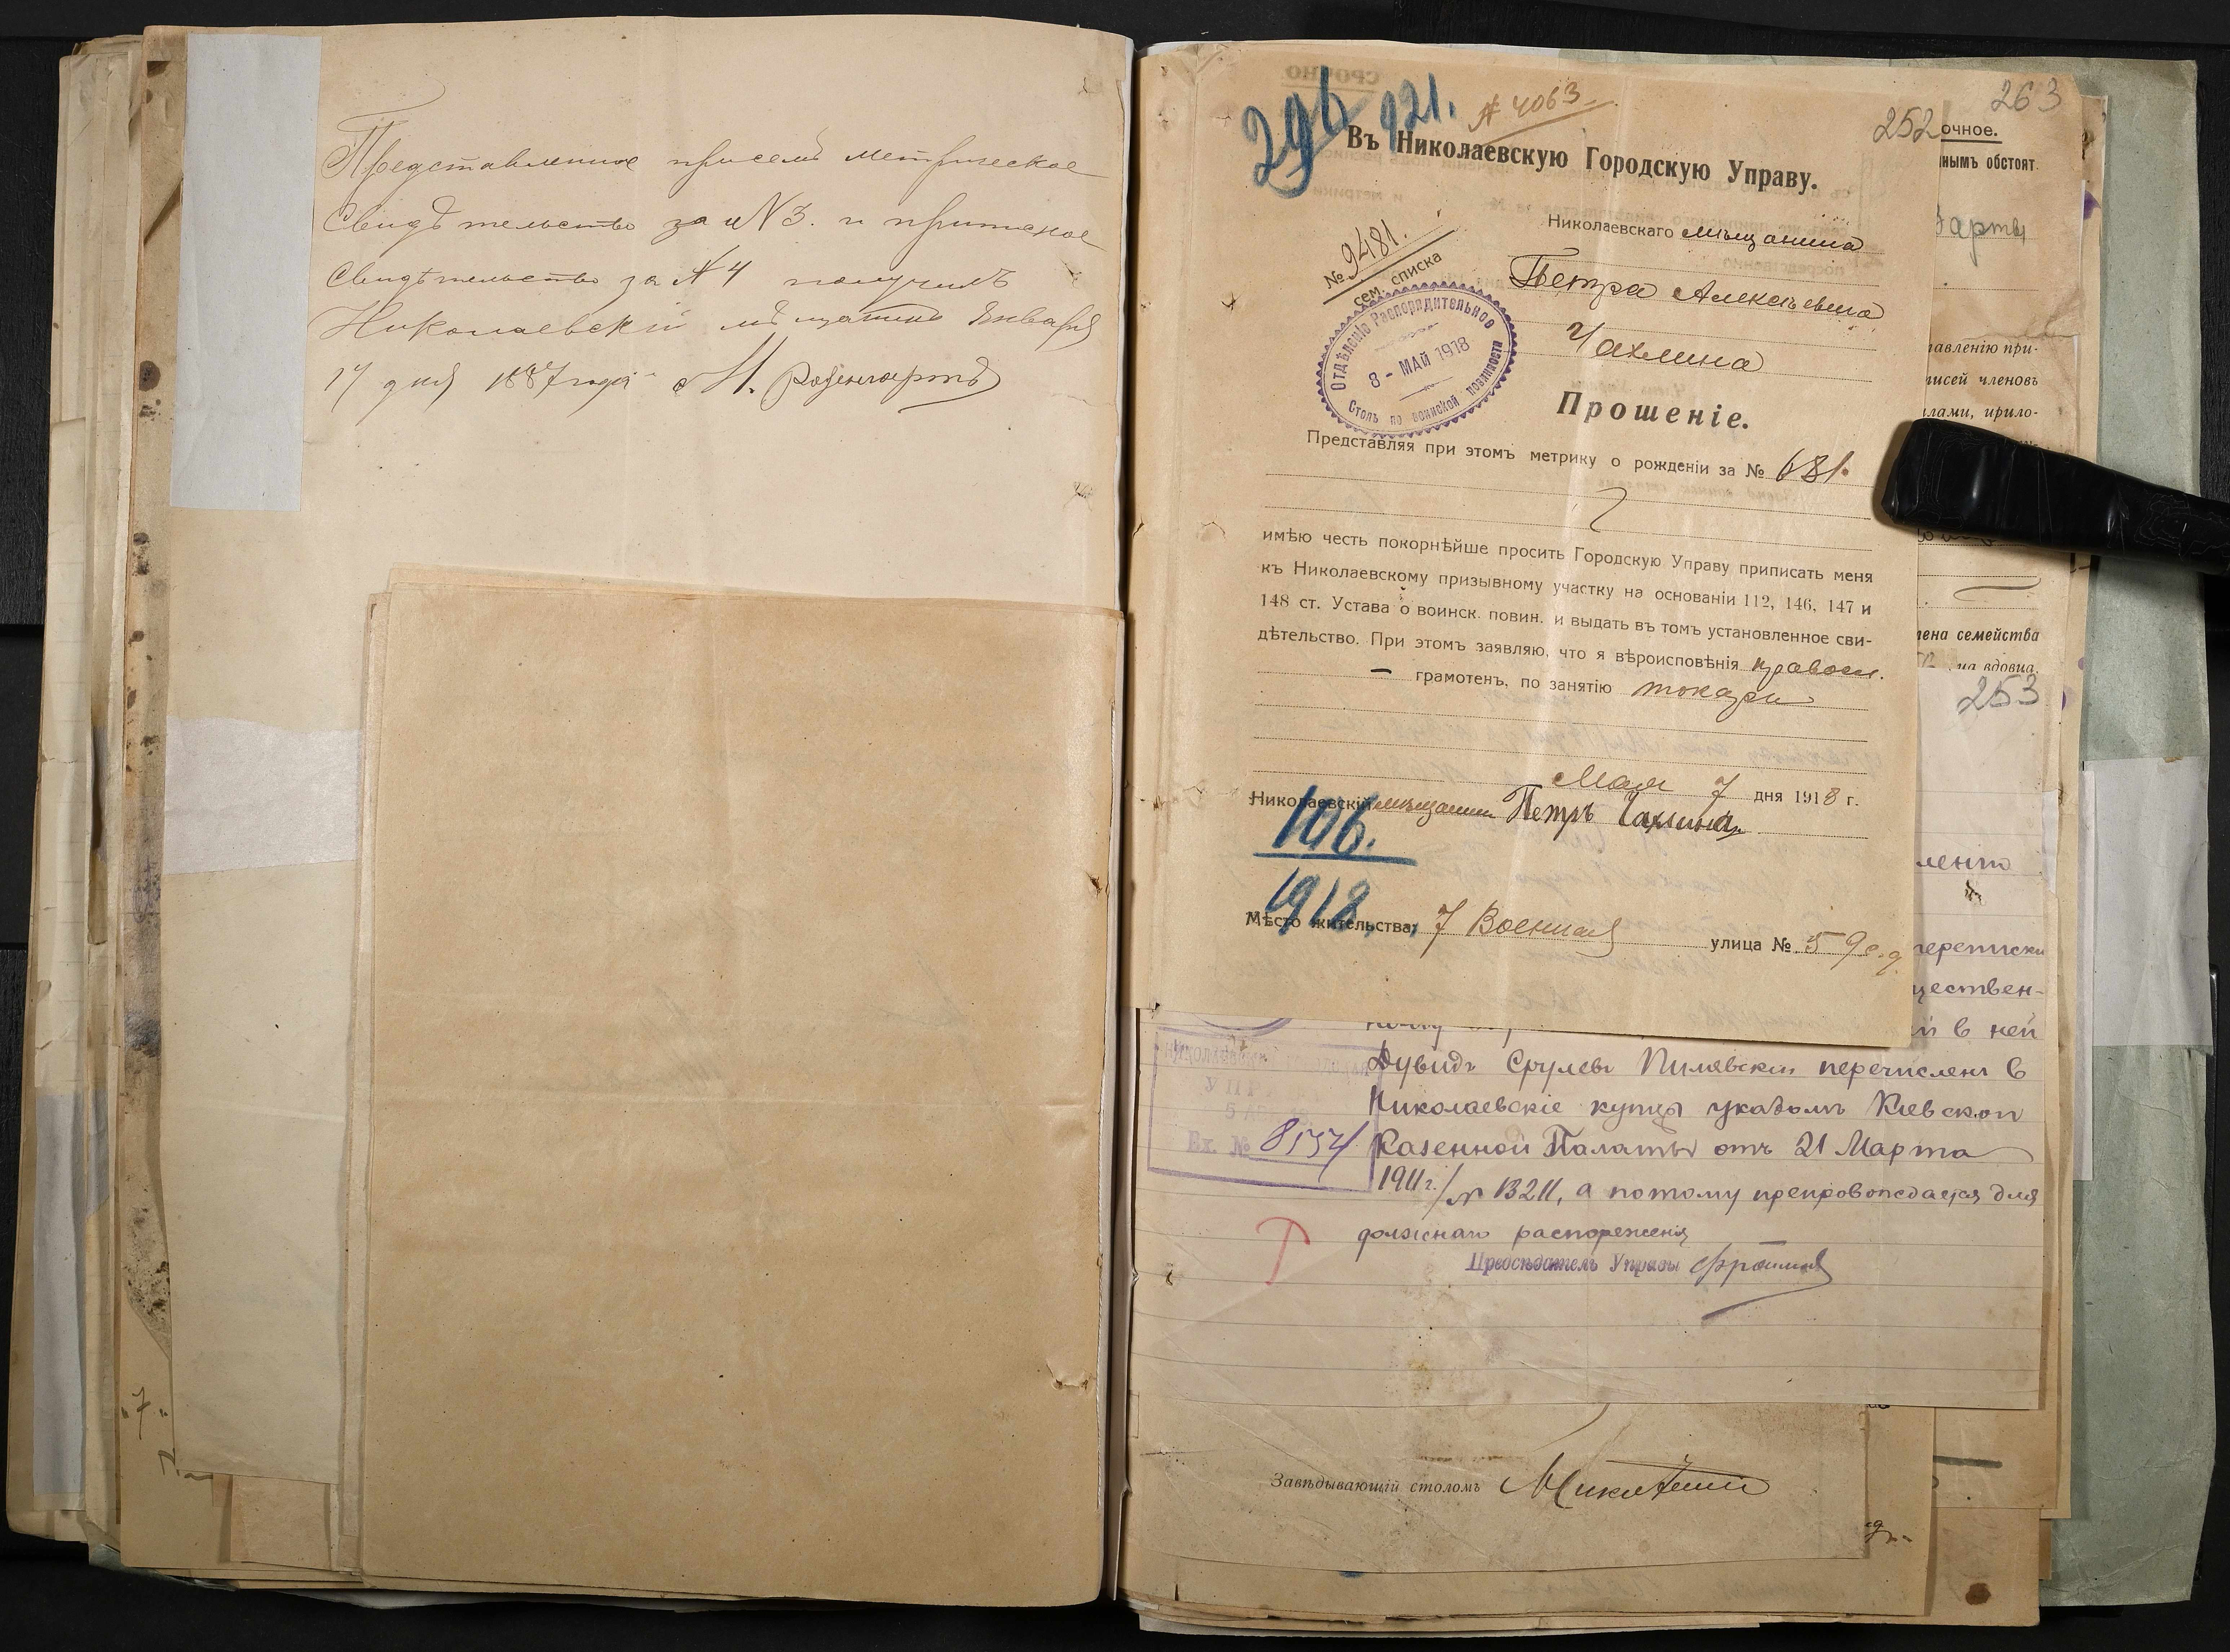 Представленное при семъ метрическое
Свидѣтельство за № 3. и приписное
Свидѣтельство за № 4 получилъ
Николаевскій мѣщанинъ Января
17 дня 1887 года М.
263
252
296
921.
№ 4063
Въ Николаевскую Городскую Управу.
№ 9481.
сем. списка
Николаевскаго мѣщанина
Петра Алексѣевича
Чахлина
ОТДѢЛЕНІЕ Распорядительное
8 - МАЙ 1918
Столъ по воинской повинности
Прошеніе.
Представляя при этомъ метрику о рожденіи за № 681.
имѣю честь покорнѣйше просить Городскую Управу приписать меня
къ Николаевскому призывному участку на основаніи 112, 146, 147 и
148 ст. Устава о воинск. повин. и выдать въ томъ установленное сви-
дѣтельство. При этомъ заявляю, что я вѣроисповѣнія правосл.
— грамотенъ, по занятію токарь
Мая 7 дня 1918 г.
Николаевскій мѣщанин Петръ Чахлинъ
106.
1918
Мѣсто жительства: 7 Военная улица № 59 с.д.
очное.
нымъ обстоят.
арты
авленію при-
писей членовъ
лами, прило-
лена семейства
на вдовца,
253
ленію
переписки
ществен-
й в ней
Дувидъ Срулевъ Пилявскій перечисленъ в
Николаевскіе купцы указомъ Кіевской
Казенной Палаты отъ 21 Марта
1911 г./№ 13211, а потому препровождается для
должнаго распореженія
Предсѣдатель Управы
Вх. № 8554
Завѣдывающій столомъ